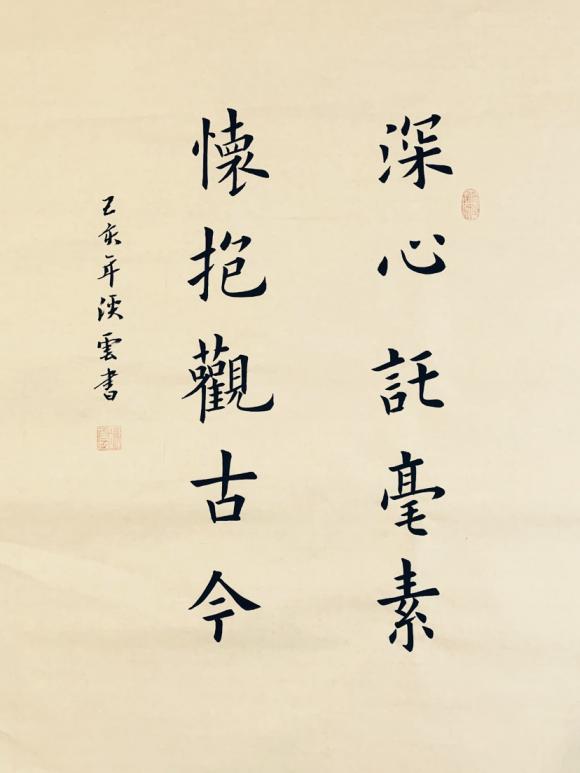 深心託毫素
懷抱觀古今
己亥年淡雲書